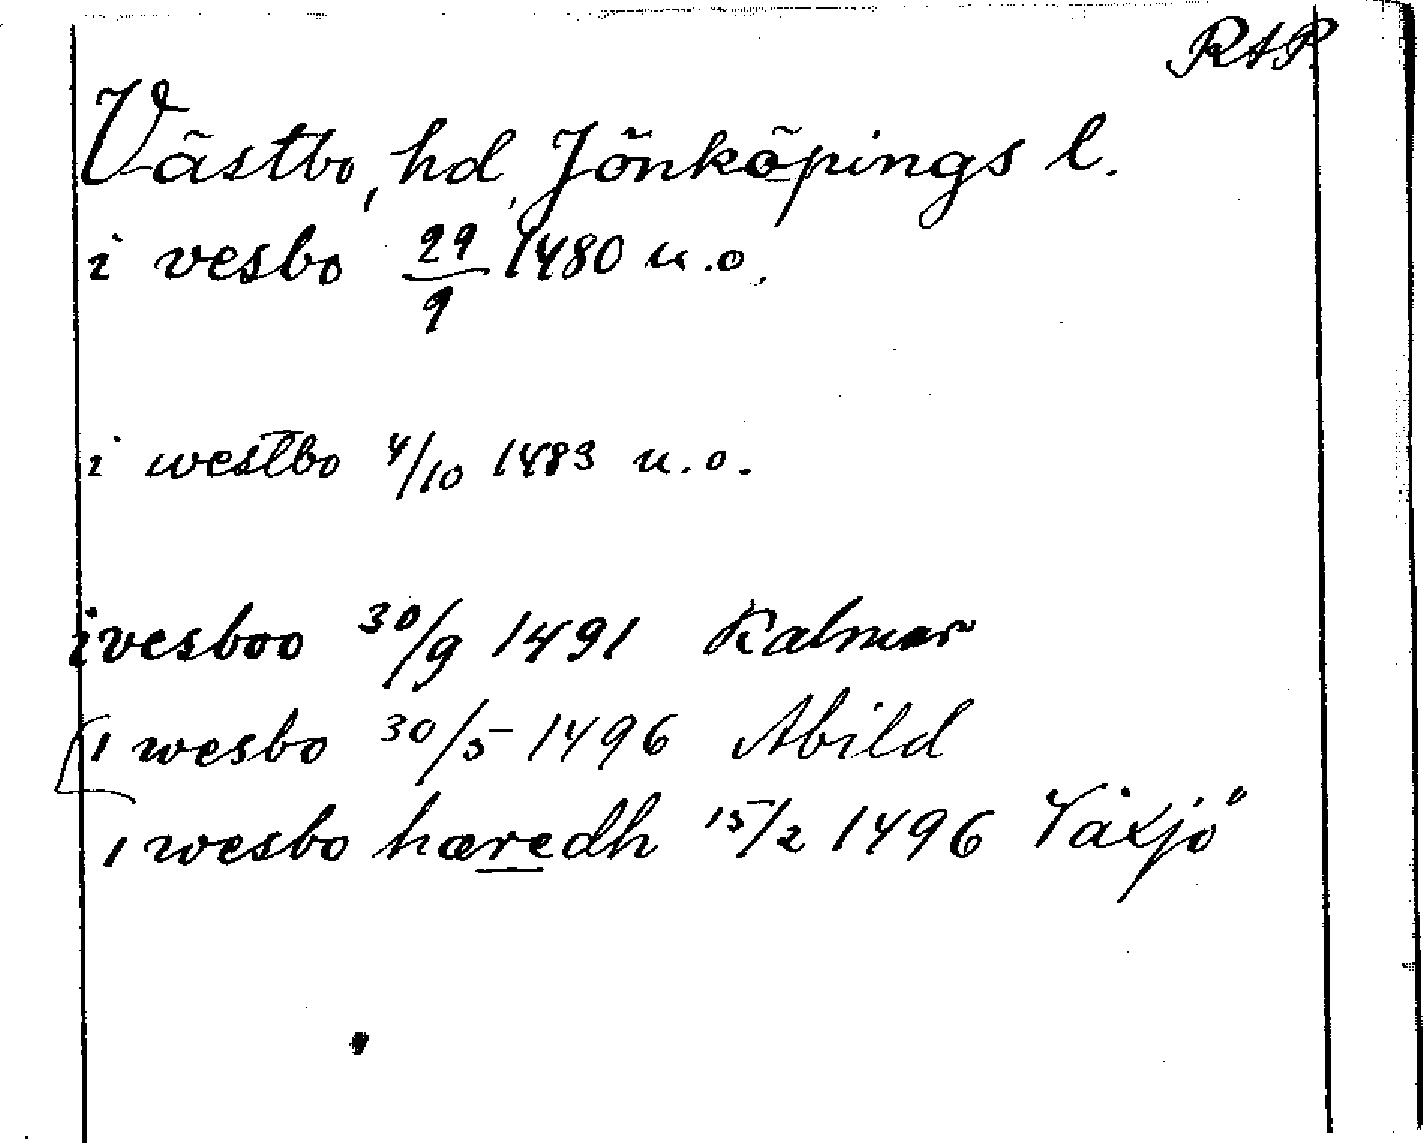 RAP
Västbo, hd, Jönköpings l.
i vesbo 29/9 1480 u.o.
i westbo 4/10 1483 u.o.
i vesboo 30/9 1491 Kalmar
i wesbo 30/5 1496 Abild
i wesbo hæredh 15/2 1496 Växjö